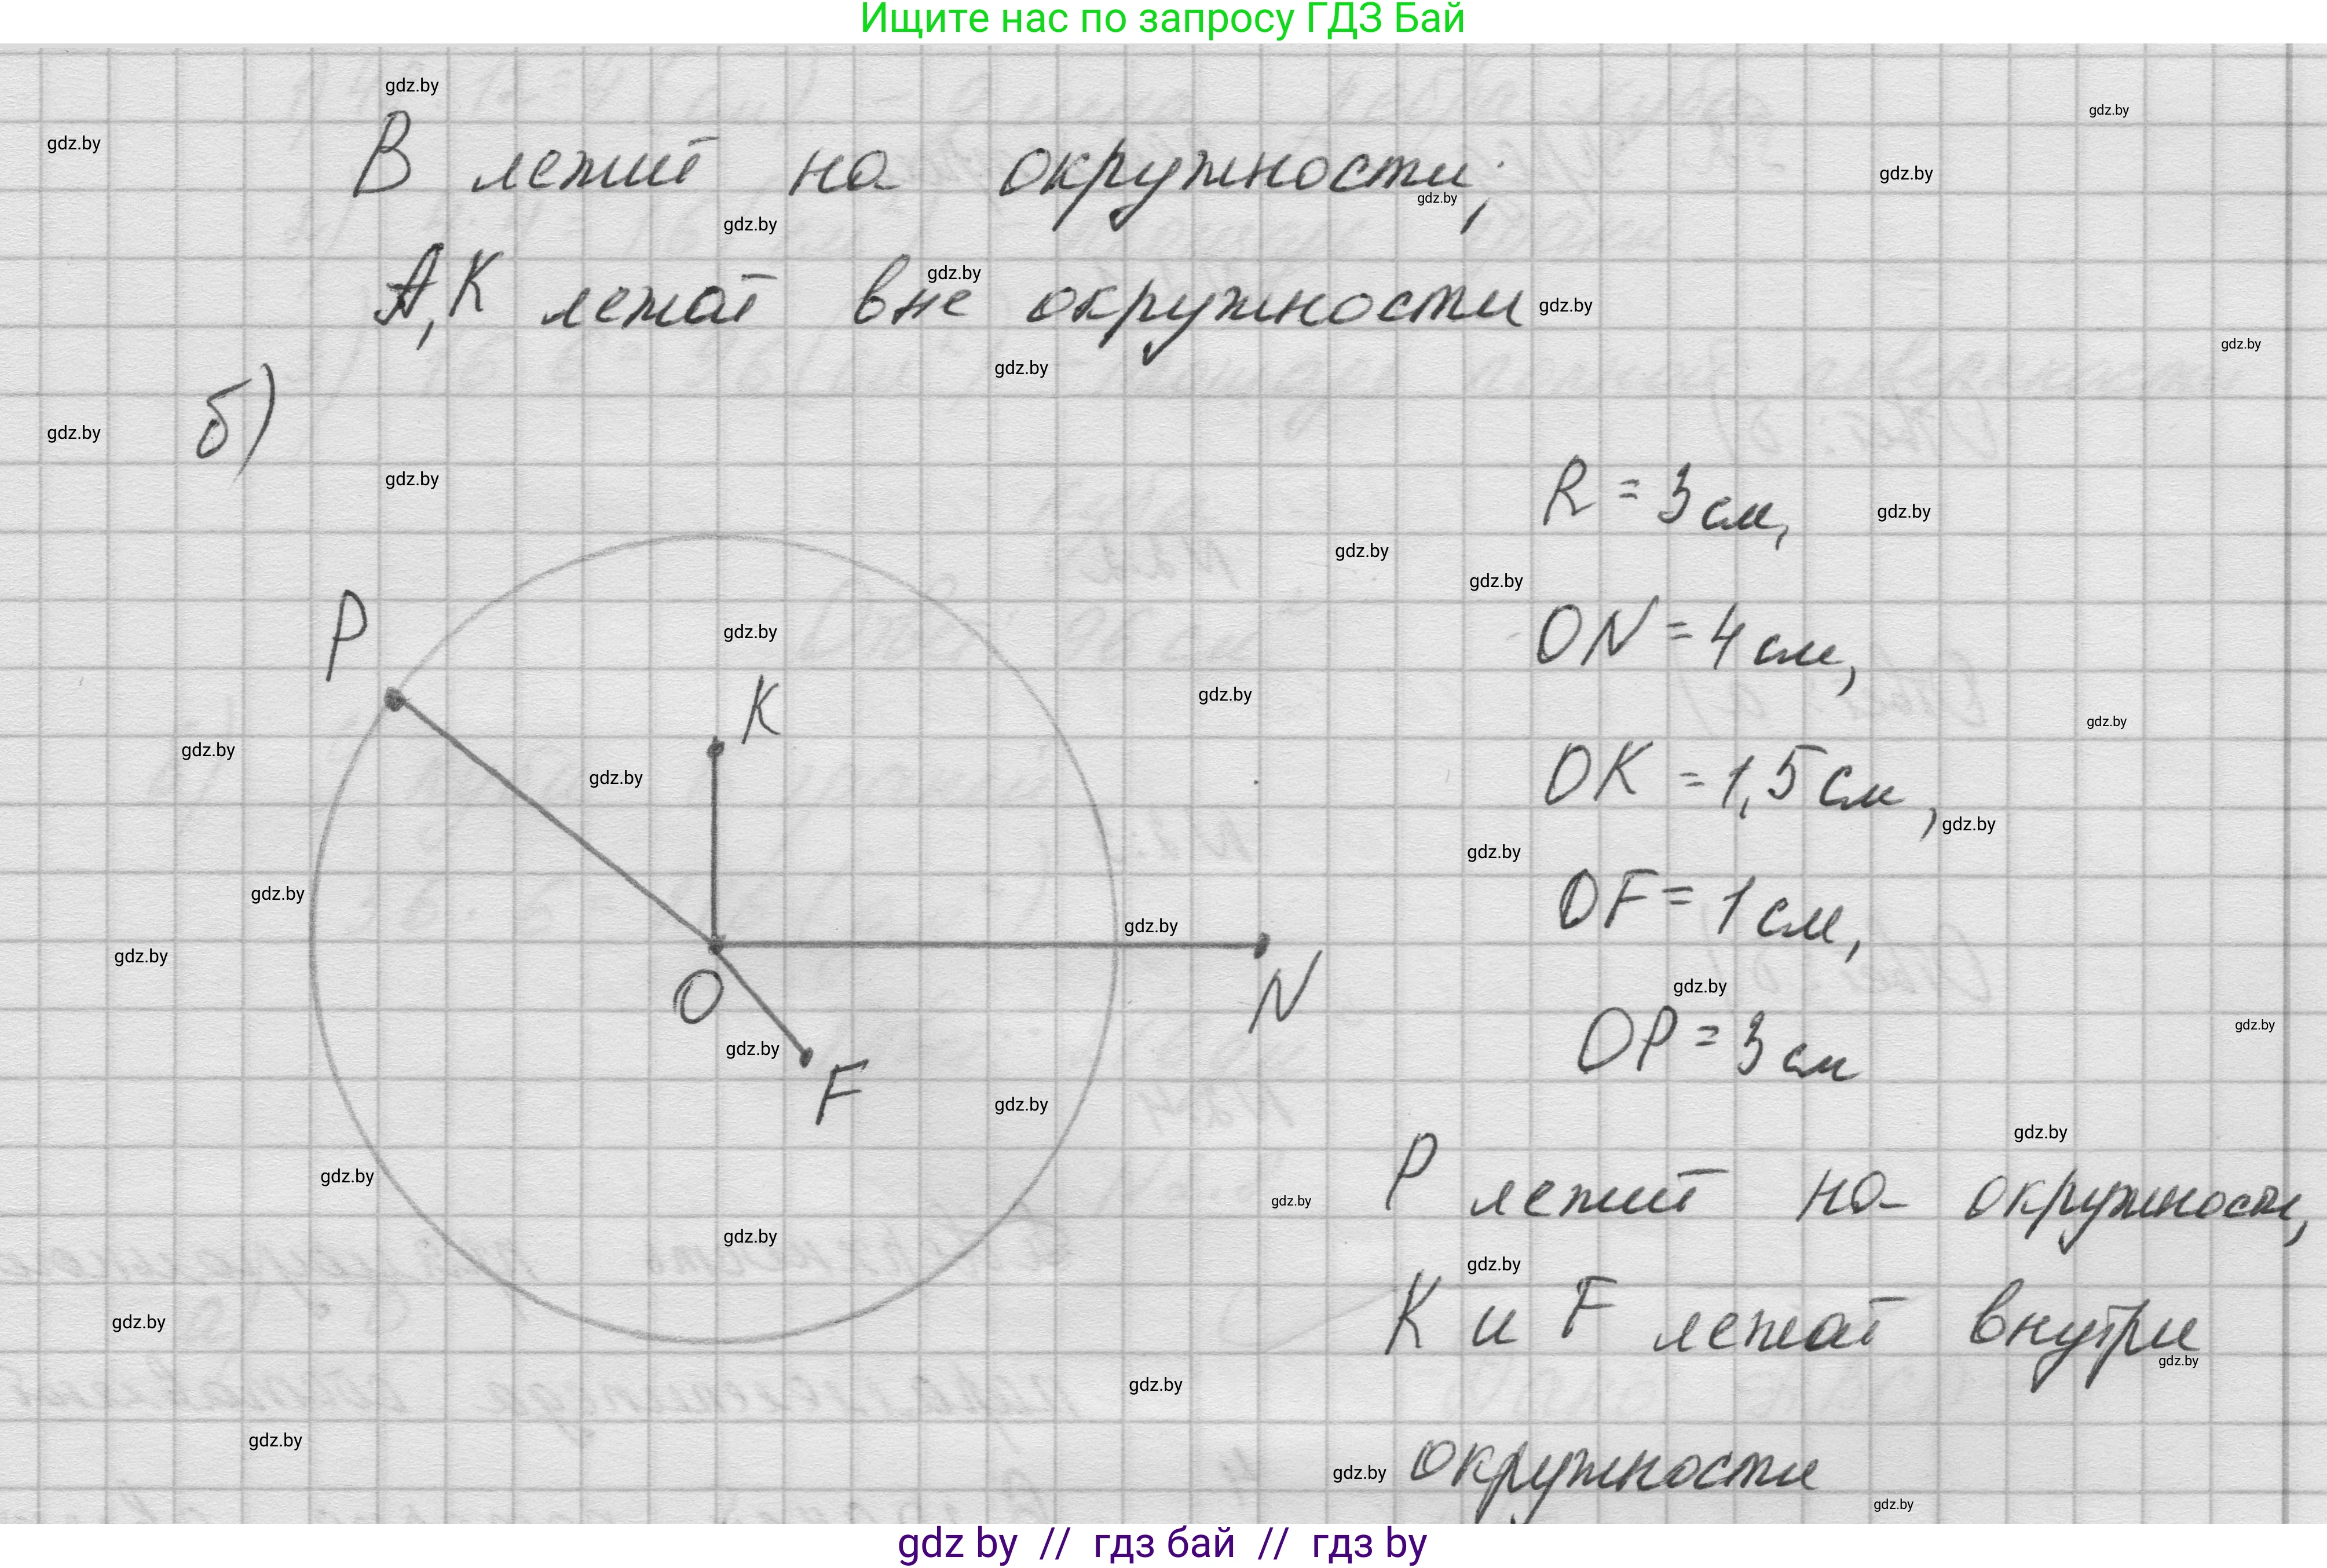 Ищите нас по запросу ГДЗ Бай
В лежит на окружности;
А,К лежат вне окружности
б)
R = 3 см,
ON = 4 см,
OK = 1,5 см,
OF = 1 см,
OP = 3 см
P
K
O
N
F
P лежит на окружности,
K и F лежат внутри
окружности
gdz.by
gdz by // гдз бай // гдз by